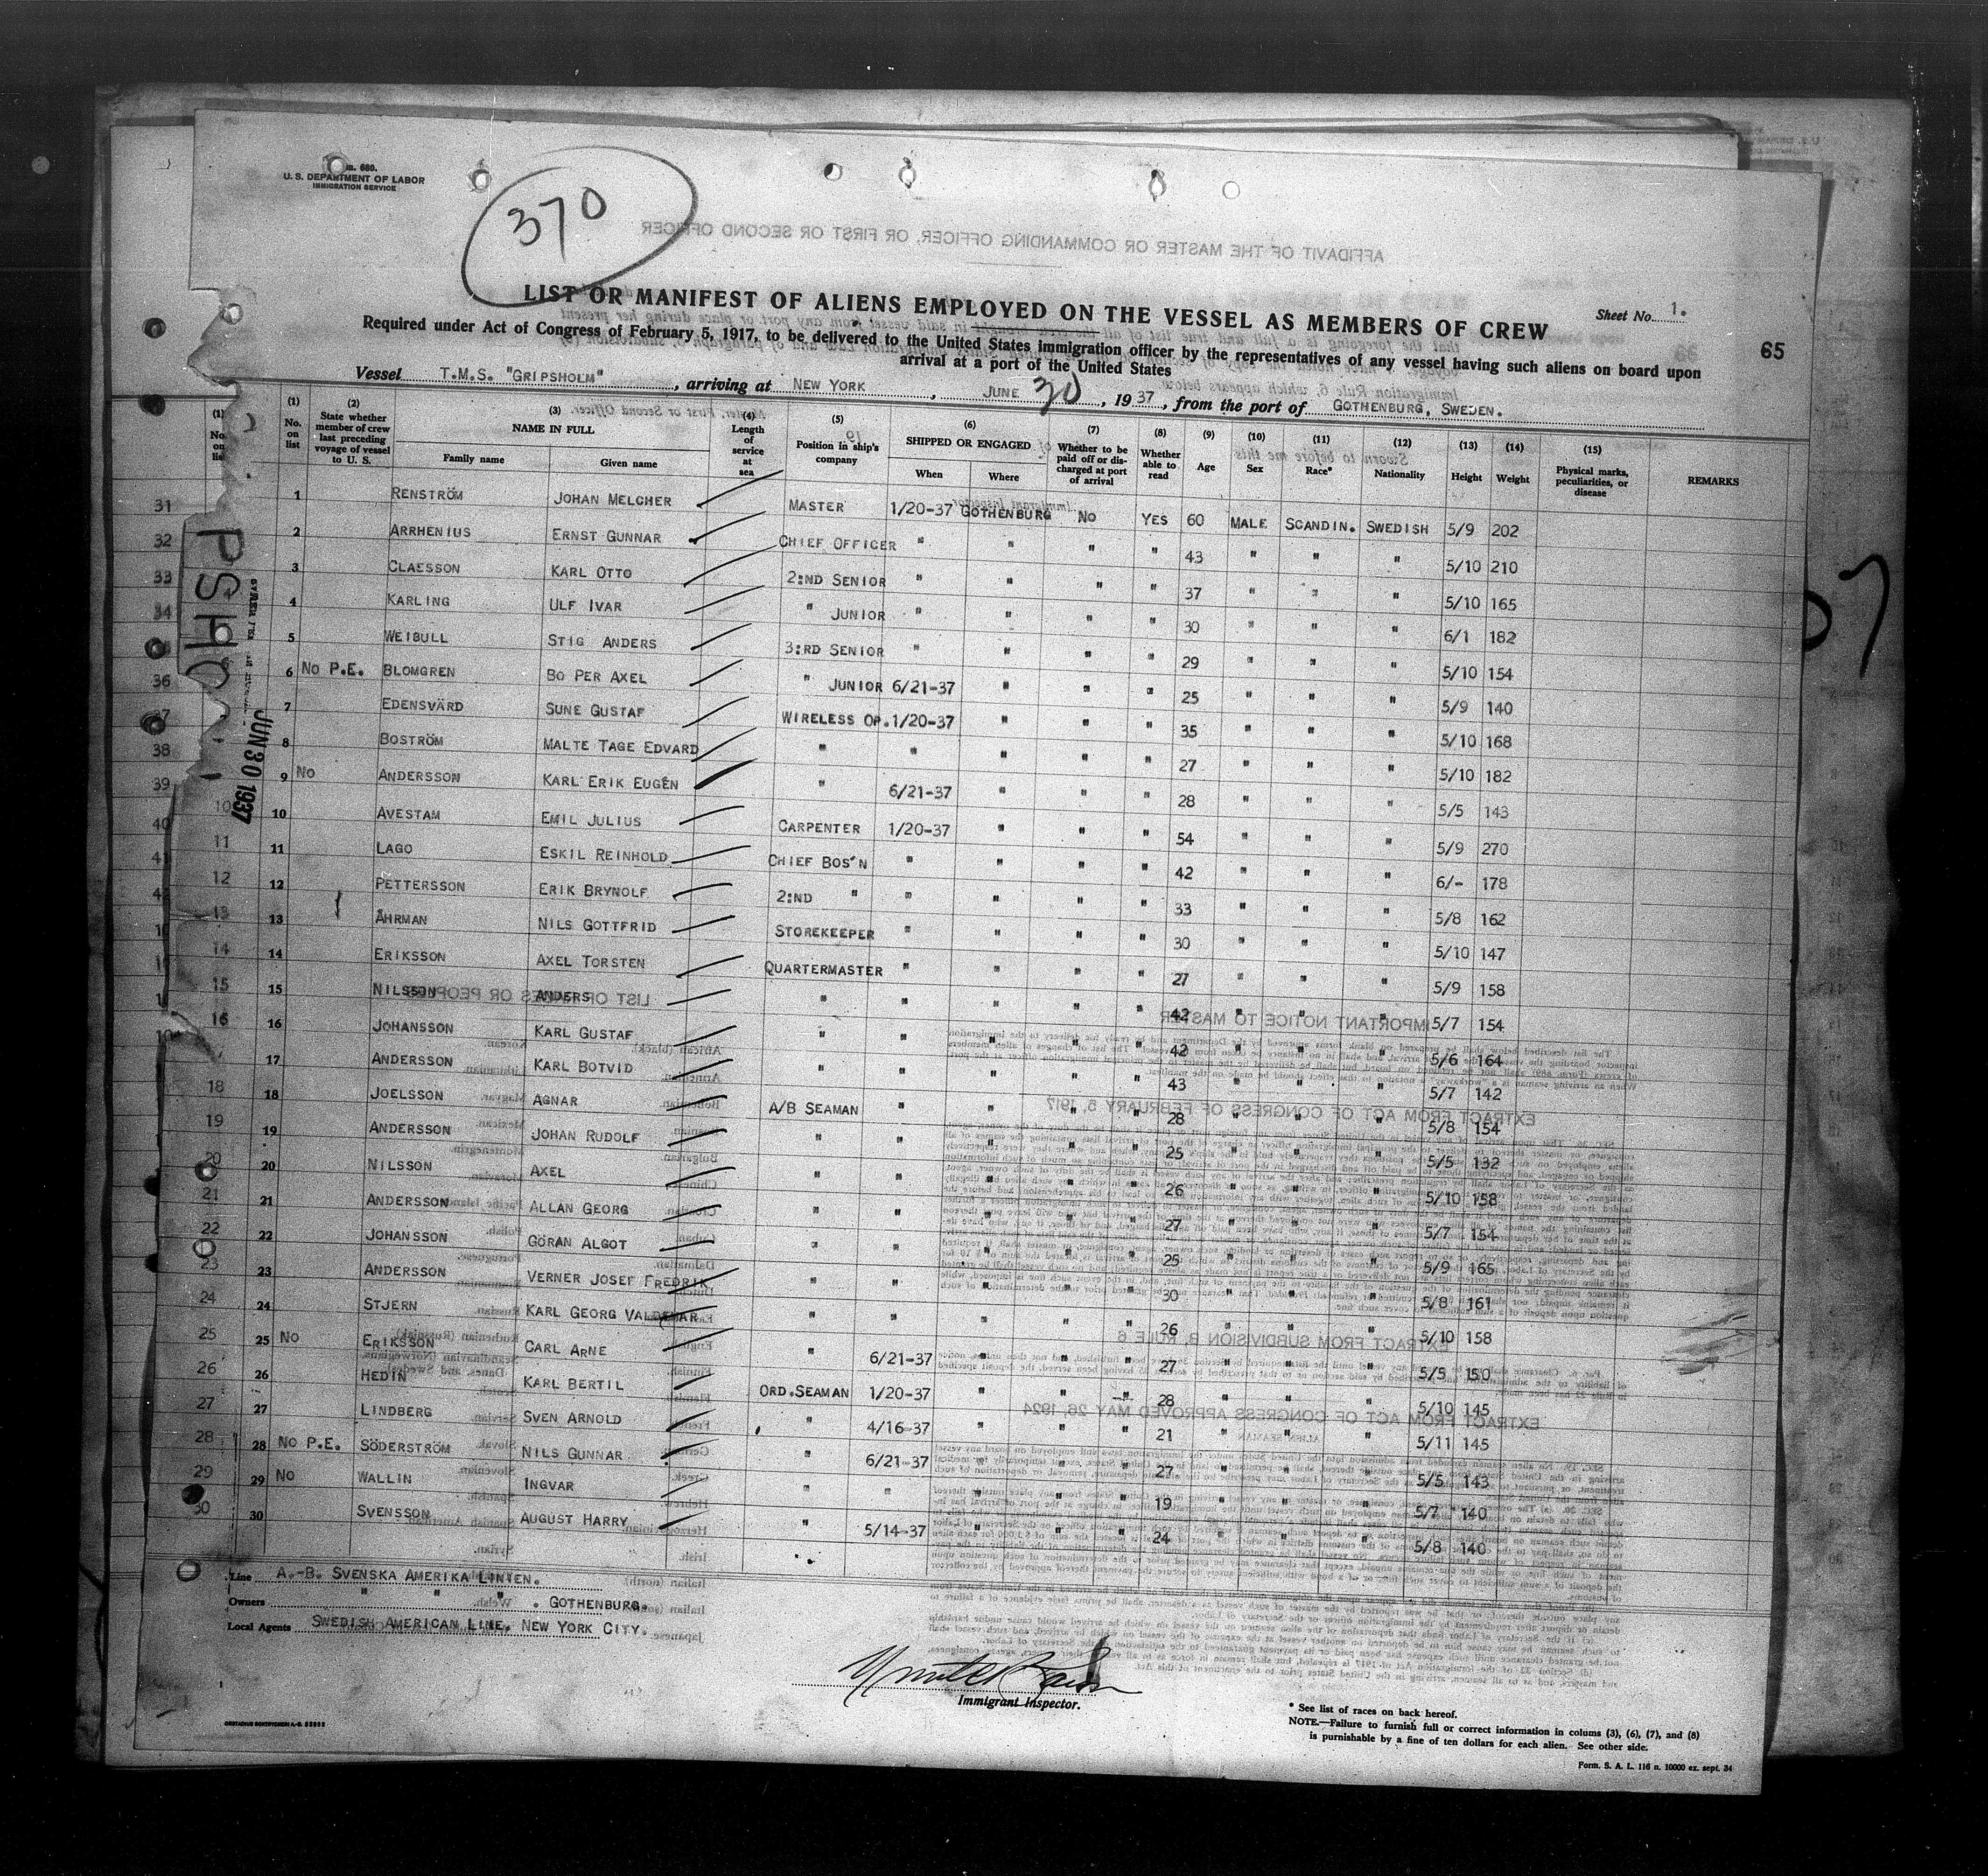 Form. 680.
U. S. DEPARTMENT OF LABOR
IMMIGRATION SERVICE
370
LIST OR MANIFEST OF ALIENS EMPLOYED ON THE VESSEL AS MEMBERS OF CREW
Sheet No. 1.
65
Required under Act of Congress of February 5, 1917, to be delivered to the United States immigration officer by the representatives of any vessel having such aliens on board upon
arrival at a port of the United States
Vessel T.M.S. "GRIPSHOLM", arriving at NEW YORK, JUNE 30, 1937, from the port of GOTHENBURG, SWEDEN.
(1) No. on list (2) State whether member of crew last preceding voyage of vessel to U. S. (3) NAME IN FULL Family name Given name (4) Length of service at sea (5) Position in ship's company (6) SHIPPED OR ENGAGED When Where (7) Whether to be paid off or discharged at port of arrival (8) Whether able to read (9) Age (10) Sex (11) Race* (12) Nationality (13) Height (14) Weight (15) Physical marks, peculiarities, or disease REMARKS
1 RENSTRÖM JOHAN MELCHER MASTER 1/20-37 GOTHENBURG NO YES 60 MALE SCANDIN. SWEDISH 5/9 202
2 ARRHENIUS ERNST GUNNAR CHIEF OFFICER " " " " 43 " " " 5/10 210
3 CLAESSON KARL OTTO 2:ND SENIOR " " " " 37 " " " 5/10 165
4 KARLING ULF IVAR " JUNIOR " " " " 30 " " " 6/1 182
5 WEIBULL STIG ANDERS 3:RD SENIOR " " " " 29 " " " 5/10 154
6 NO P.E. BLOMGREN BO PER AXEL " JUNIOR 6/21-37 " " " 25 " " " 5/9 140
7 EDENSVÄRD SUNE GUSTAF WIRELESS OP. 1/20-37 " " " 35 " " " 5/10 168
8 BOSTRÖM MALTE TAGE EDVARD " " " " " 27 " " " 5/10 182
9 NO ANDERSSON KARL ERIK EUGÉN " 6/21-37 " " " 28 " " " 5/5 143
10 AVESTAM EMIL JULIUS CARPENTER 1/20-37 " " " 54 " " " 5/9 270
11 LAGO ESKIL REINHOLD CHIEF BOS'N " " " " 42 " " " 6/- 178
12 PETTERSSON ERIK BRYNOLF 2:ND " " " " " 33 " " " 5/8 162
13 ÅHRMAN NILS GOTTFRID STOREKEEPER " " " " 30 " " " 5/10 147
14 ERIKSSON AXEL TORSTEN QUARTERMASTER " " " " 27 " " " 5/9 158
15 NILSSON ANDERS " " " " " 42 " " " 5/7 154
16 JOHANSSON KARL GUSTAF " " " " " 42 " " " 5/6 164
17 ANDERSSON KARL BOTVID " " " " " 43 " " " 5/7 142
18 JOELSSON AGNAR A/B SEAMAN " " " " 28 " " " 5/8 154
19 ANDERSSON JOHAN RUDOLF " " " " " 25 " " " 5/5 132
20 NILSSON AXEL " " " " " 26 " " " 5/10 158
21 ANDERSSON ALLAN GEORG " " " " " 27 " " " 5/7 154
22 JOHANSSON GÖRAN ALGOT " " " " " 25 " " " 5/9 165
23 ANDERSSON VERNER JOSEF FREDRIK " " " " " 30 " " " 5/8 161
24 STJERN KARL GEORG VALDEMAR " " " " " 26 " " " 5/10 158
25 NO ERIKSSON CARL ARNE " 6/21-37 " " " 27 " " " 5/5 150
26 HEDIN KARL BERTIL ORD.SEAMAN 1/20-37 " " " 28 " " " 5/10 145
27 LINDBERG SVEN ARNOLD " 4/16-37 " " " 21 " " " 5/11 145
28 NO P.E. SÖDERSTRÖM NILS GUNNAR " 6/21-37 " " " 27 " " " 5/5 143
29 NO WALLIN INGVAR " " " " " 19 " " " 5/7 140
30 SVENSSON AUGUST HARRY " 5/14-37 " " " 24 " " " 5/8 140
JUN 30 1937
Line A.-B. SVENSKA AMERIKA LINIEN.
Owners " " " . GOTHENBURG.
Local Agents SWEDISH AMERICAN LINE. NEW YORK CITY.
Immigrant Inspector.
* See list of races on back hereof.
NOTE.—Failure to furnish full or correct information in colums (3), (6), (7), and (8)
is punishable by a fine of ten dollars for each alien. See other side.
Form. S. A. L. 116 n. 10000 ex. sept. 34